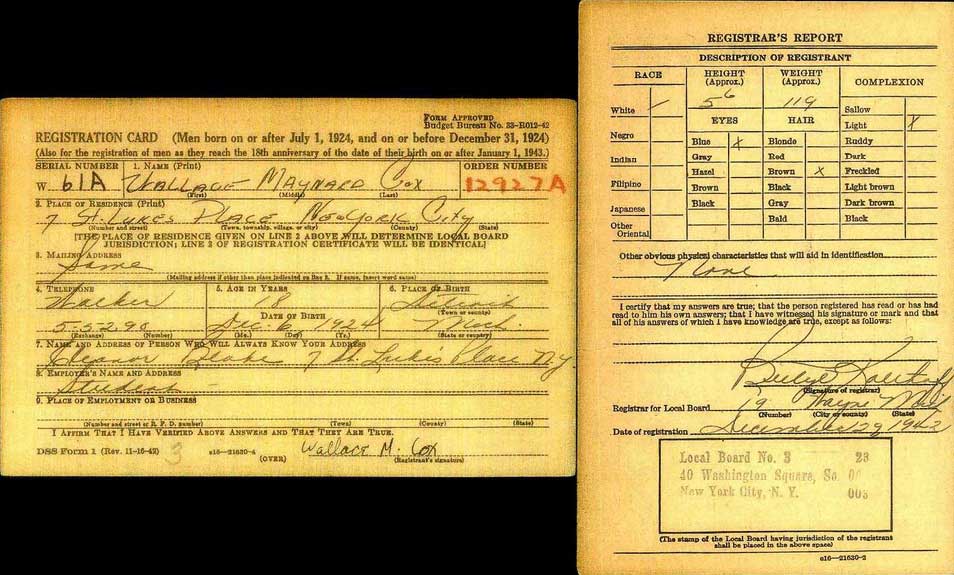 FORM APPROVED
Budget Bureau No. 33-R012-42
REGISTRATION CARD (Men born on or after July 1, 1924, and on or before December 31, 1924)
(Also for the registration of men as they reach the 18th anniversary of the date of their birth on or after January 1, 1943.)
SERIAL NUMBER 1. NAME (Print) ORDER NUMBER
W 61A WALLACE MAYNARD COX 12927A
(First) (Middle) (Last)
2. PLACE OF RESIDENCE (Print)
7 ST. LUKES PLACE NEW YORK CITY
(Number and street) (Town, township, village, or city) (County) (State)
[THE PLACE OF RESIDENCE GIVEN ON LINE 2 ABOVE WILL DETERMINE LOCAL BOARD
JURISDICTION; LINE 2 OF REGISTRATION CERTIFICATE WILL BE IDENTICAL]
3. MAILING ADDRESS
Same
(Mailing address if other than place indicated on line 2. If same, insert word same)
4. TELEPHONE 5. AGE IN YEARS 6. PLACE OF BIRTH
Walker 18 Detroit
(Town or county)
DATE OF BIRTH
5-5298 Dec. 6 1924 Mich
(Exchange) (Number) (Mo.) (Day) (Yr.) (State or country)
7. NAME AND ADDRESS OF PERSON WHO WILL ALWAYS KNOW YOUR ADDRESS
Eleanor Blake 7 St. Lukes Place NY
8. EMPLOYER'S NAME AND ADDRESS
Student -
9. PLACE OF EMPLOYMENT OR BUSINESS
(Number and street or R. F. D. number) (Town) (County) (State)
I AFFIRM THAT I HAVE VERIFIED ABOVE ANSWERS AND THAT THEY ARE TRUE.
DSS Form 1 (Rev. 11-16-42) 3 16—21630-4 Wallace M. Cox
(OVER) (Registrant's signature)
REGISTRAR'S REPORT
DESCRIPTION OF REGISTRANT
RACE HEIGHT (Approx.) WEIGHT (Approx.) COMPLEXION
White 5 6 119 Sallow
EYES HAIR Light X
Negro Blue X Blonde Ruddy
Gray Red Dark
Indian Hazel Brown X Freckled
Filipino Brown Black Light brown
Japanese Black Gray Dark brown
Bald Black
Other
Oriental
Other obvious physical characteristics that will aid in identification
None
I certify that my answers are true; that the person registered has read or has had
read to him his own answers; that I have witnessed his signature or mark and that
all of his answers of which I have knowledge are true, except as follows:
(Signature of registrar)
Registrar for Local Board 19 Wayne Mich
(Number) (City or county) (State)
Date of registration December 29 1942
Local Board No. 3 23
40 Washington Square, So.
New York City, N. Y. 003
(The stamp of the Local Board having jurisdiction of the registrant
shall be placed in the above space)
16—21630-2